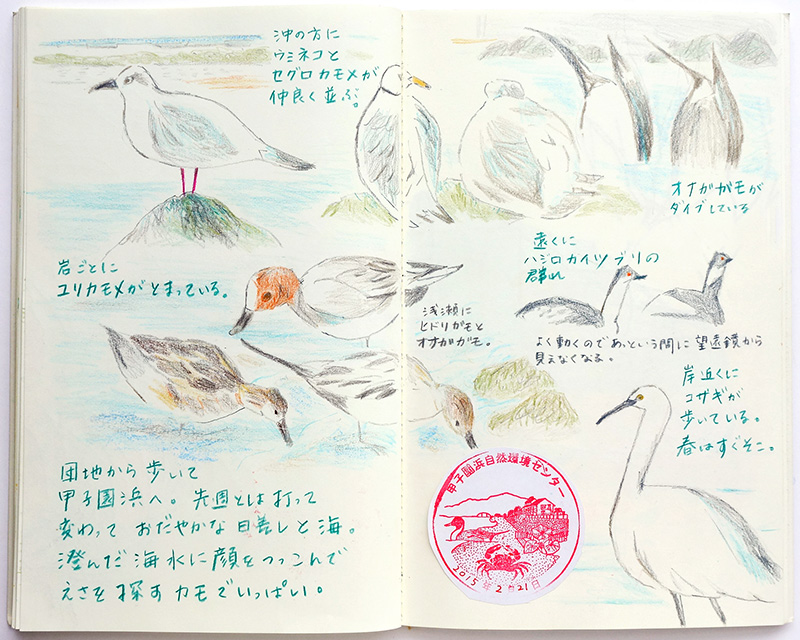 沖の方に
ウミネコと
セグロカモメが
仲良く並ぶ。
岩ごとに
ユリカモメがとまっている。
団地から歩いて
甲子園浜へ。先週とは打って
変わって おだやかな日差しと海。
澄んだ海水に顔をつっこんで
えさを探すカモでいっぱい。
オナガガモが
ダイブしている
遠くに
ハジロカイツブリの
群れ
よく動くのであっという間に望遠鏡から
見えなくなる。
浅瀬に
ヒドリガモと
オナガガモ。
岸近くに
コサギが
歩いている。
春はすぐそこ。
甲子園浜自然環境センター
2015年2月21日